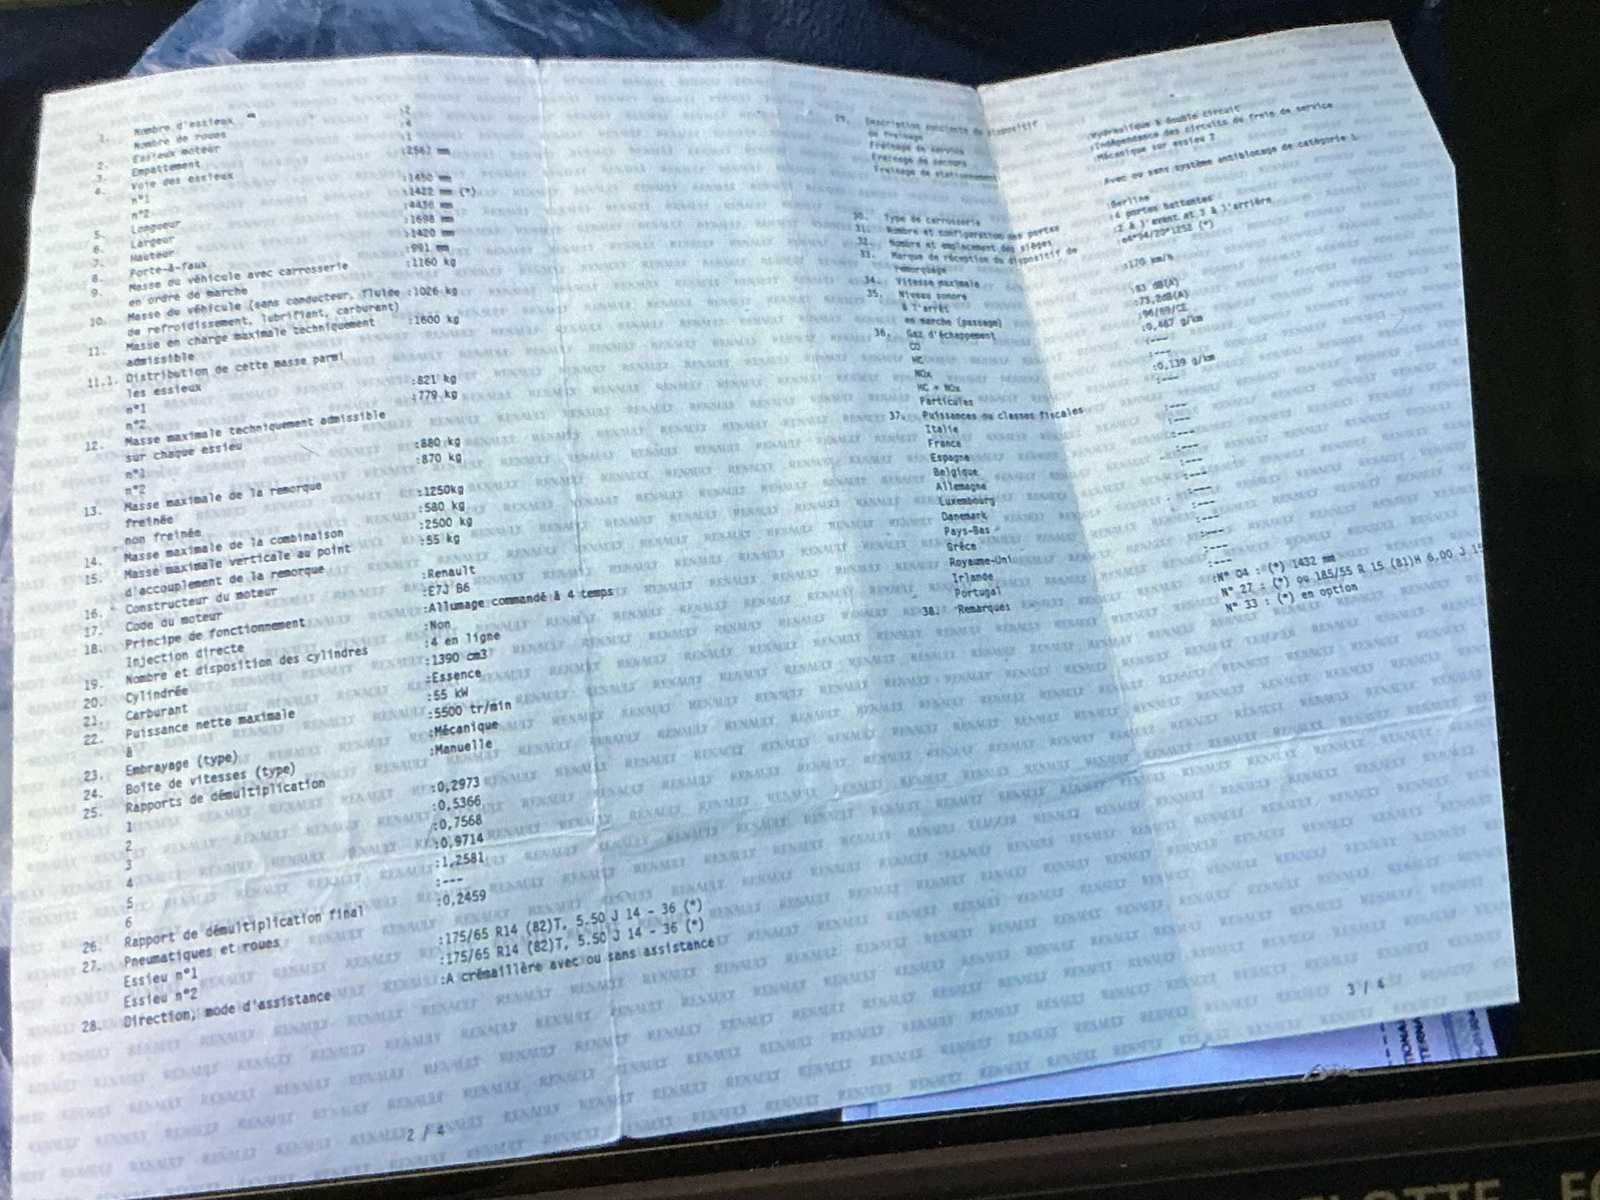 1. Nombre d'essieux :2
Nombre de roues :4
2. Essieux moteur :1
3. Empattement :2567 mm
4. Voie des essieux
n°1 :1450 mm
n°2 :1422 mm (*)
5. Longueur :4436 mm
6. Largeur :1698 mm
7. Hauteur :1420 mm
8. Porte-à-faux :991 mm
9. Masse du véhicule avec carrosserie :1160 kg
en ordre de marche
10. Masse du véhicule (sans conducteur, fluide :1026 kg
de refroidissement, lubrifiant, carburant)
11. Masse en charge maximale techniquement :1600 kg
admissible
11.1. Distribution de cette masse parmi
les essieux
n°1 :821 kg
n°2 :779 kg
12. Masse maximale techniquement admissible
sur chaque essieu
n°1 :880 kg
n°2 :870 kg
13. Masse maximale de la remorque
freinée :1250kg
non freinée :580 kg
14. Masse maximale de la combinaison :2500 kg
15. Masse maximale verticale au point :55 kg
d'accouplement de la remorque
16. Constructeur du moteur :Renault
17. Code du moteur :E7J B6
18. Principe de fonctionnement :Allumage commandé à 4 temps
Injection directe :Non
19. Nombre et disposition des cylindres :4 en ligne
20. Cylindrée :1390 cm3
21. Carburant :Essence
22. Puissance nette maximale :55 kW
à :5500 tr/min
23. Embrayage (type) :Mécanique
24. Boîte de vitesses (type) :Manuelle
25. Rapports de démultiplication
1 :0,2973
2 :0,5366
3 :0,7568
4 :0,9714
5 :1,2581
6 :---
26. Rapport de démultiplication final :0,2459
27. Pneumatiques et roues
Essieu n°1 :175/65 R14 (82)T, 5.50 J 14 - 36 (*)
Essieu n°2 :175/65 R14 (82)T, 5.50 J 14 - 36 (*)
28. Direction, mode d'assistance :A crémaillère avec ou sans assistance
2 / 4
29. Description succincte du dispositif :Hydraulique à double circuit
de freinage
Freinage de service :Indépendance des circuits de frein de service
Freinage de secours :Mécanique sur essieu 2
Freinage de stationnement
Avec ou sans système antiblocage de catégorie 1
30. Type de carrosserie :Berline
31. Nombre et configuration des portes :4 portes battantes
32. Nombre et emplacement des sièges :2 à l'avant et 3 à l'arrière
33. Marque de réception du dispositif de :e4*94/20*1252 (*)
remorquage
34. Vitesse maximale :170 km/h
35. Niveau sonore
à l'arrêt :83 dB(A)
en marche (passage) :73,2dB(A)
36. Gaz d'échappement :96/69/CE
CO :0,467 g/km
HC :---
NOx :---
HC + NOx :0,139 g/km
Particules :---
37. Puissances ou classes fiscales
Italie :---
France :---
Espagne :---
Belgique :---
Allemagne :---
Luxembourg :---
Danemark :---
Pays-Bas :---
Grèce :---
Royaume-Uni :---
Irlande :---
Portugal :---
38. Remarques :N° 04 : (*) 1432 mm
N° 27 : (*) ou 185/55 R 15 (81)H 6,00 J 15
N° 33 : (*) en option
3 / 4